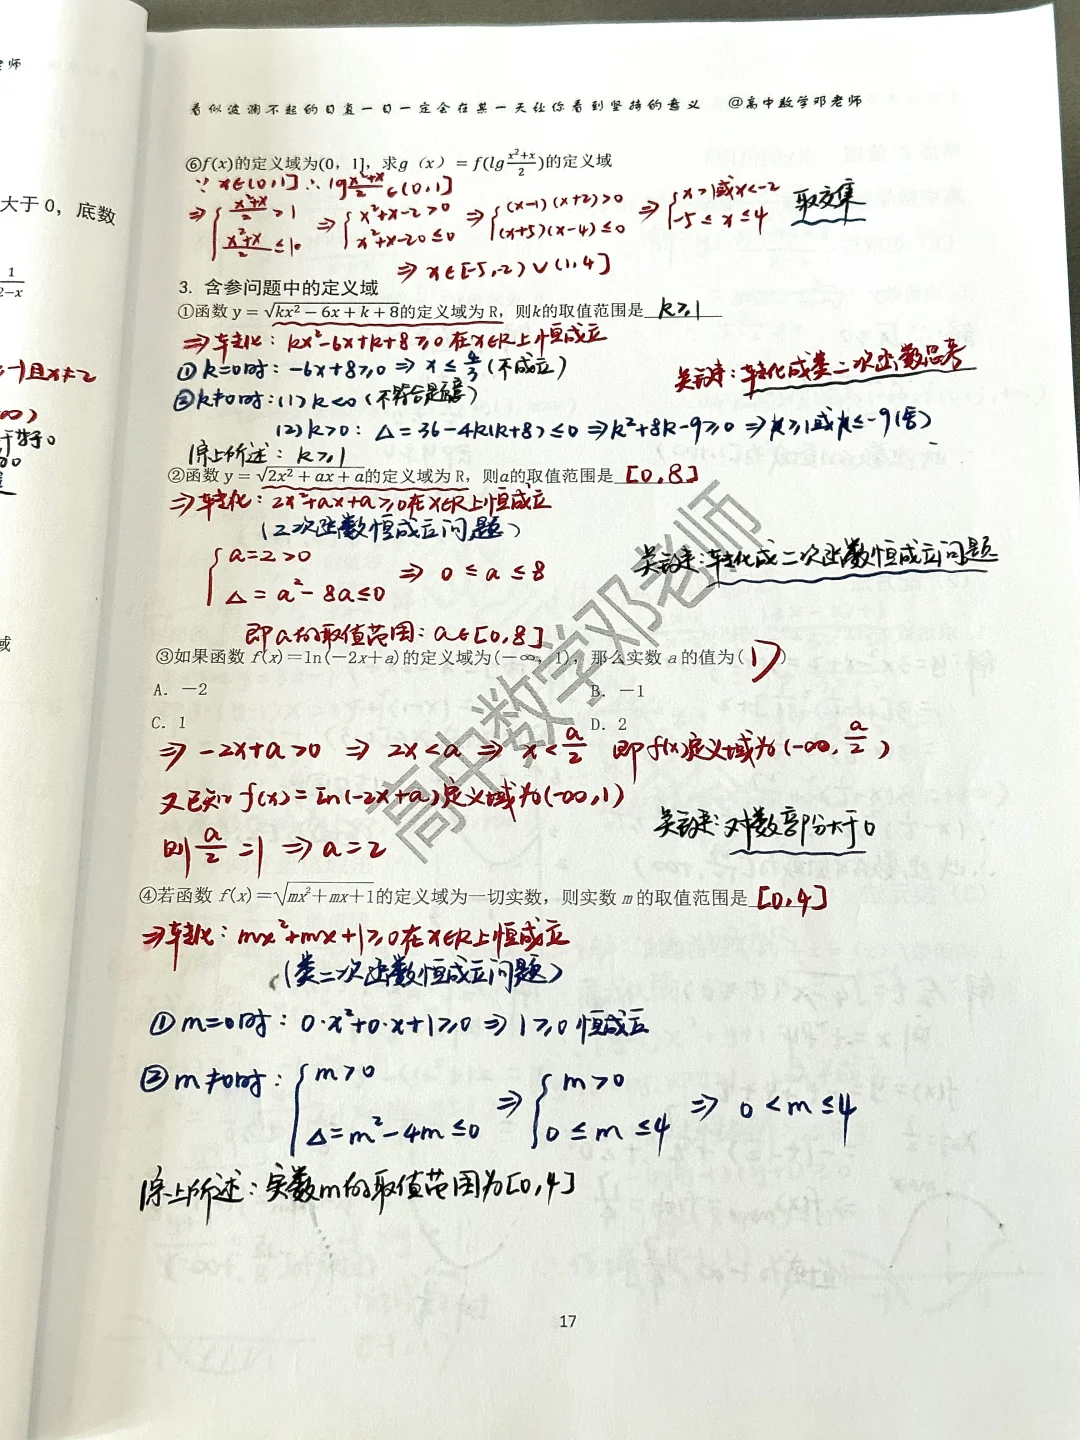 看似波澜不起的日复一日一定会在某一天让你看到坚持的意义 @高中数学邓老师
老师
大于 0，底数
⑥f(x)的定义域为(0，1]，求g（x）＝f(lg (x²+x)/2)的定义域
∵ x∈(0,1] ∴ lg (x²+x)/2 ∈(0,1]
⇒ { (x²+x)/2 >1 ⇒ { x²+x-2>0 ⇒ { (x-1)(x+2)>0 ⇒ { x>1或x<-2 取交集
(x²+x)/2 ≤10 x²+x-20≤0 (x+5)(x-4)≤0 -5≤x≤4
⇒ x∈[-5,-2)∪(1,4]
3. 含参问题中的定义域
①函数 y＝√(kx²－6x＋k＋8)的定义域为 R，则k的取值范围是 k≥1
⇒转化：kx²-6x+k+8≥0在x∈R上恒成立
①k=0时：-6x+8≥0 ⇒ x≤4/3 (不成立)
关键：转化成类二次函数思考
②k≠0时：(1) k<0 (不符合题意)
(2) k>0：△=36-4k(k+8)≤0 ⇒k²+8k-9≥0 ⇒k≥1或k≤-9(舍)
综上所述：k≥1
②函数 y＝√(2x²＋ax＋a)的定义域为 R，则a的取值范围是 [0,8]
⇒转化：2x²+ax+a≥0在x∈R上恒成立
(二次函数恒成立问题)
{ a=2>0
△=a²-8a≤0 ⇒ 0≤a≤8
关键：转化成二次函数恒成立问题
即a的取值范围：a∈[0,8]
③如果函数 f(x)＝ln(－2x＋a)的定义域为(－∞，1)，那么实数 a 的值为( D )
A．－2 B．－1
C．1 D．2
⇒ -2x+a>0 ⇒ 2x<a ⇒ x<a/2 即f(x)定义域为(-∞, a/2)
又已知 f(x)=ln(-2x+a)定义域为(-∞,1)
关键：对数部分大于0
则 a/2 =1 ⇒ a=2
④若函数 f(x)＝√(mx²＋mx＋1)的定义域为一切实数，则实数 m 的取值范围是 [0,4]
⇒转化：mx²+mx+1≥0在x∈R上恒成立
(类二次函数恒成立问题)
①m=0时：0·x²+0·x+1≥0 ⇒ 1≥0 恒成立
②m≠0时：{ m>0 ⇒ { m>0 ⇒ 0<m≤4
△=m²-4m≤0 0≤m≤4
综上所述：实数m的取值范围为[0,4]
高中数学邓老师
17